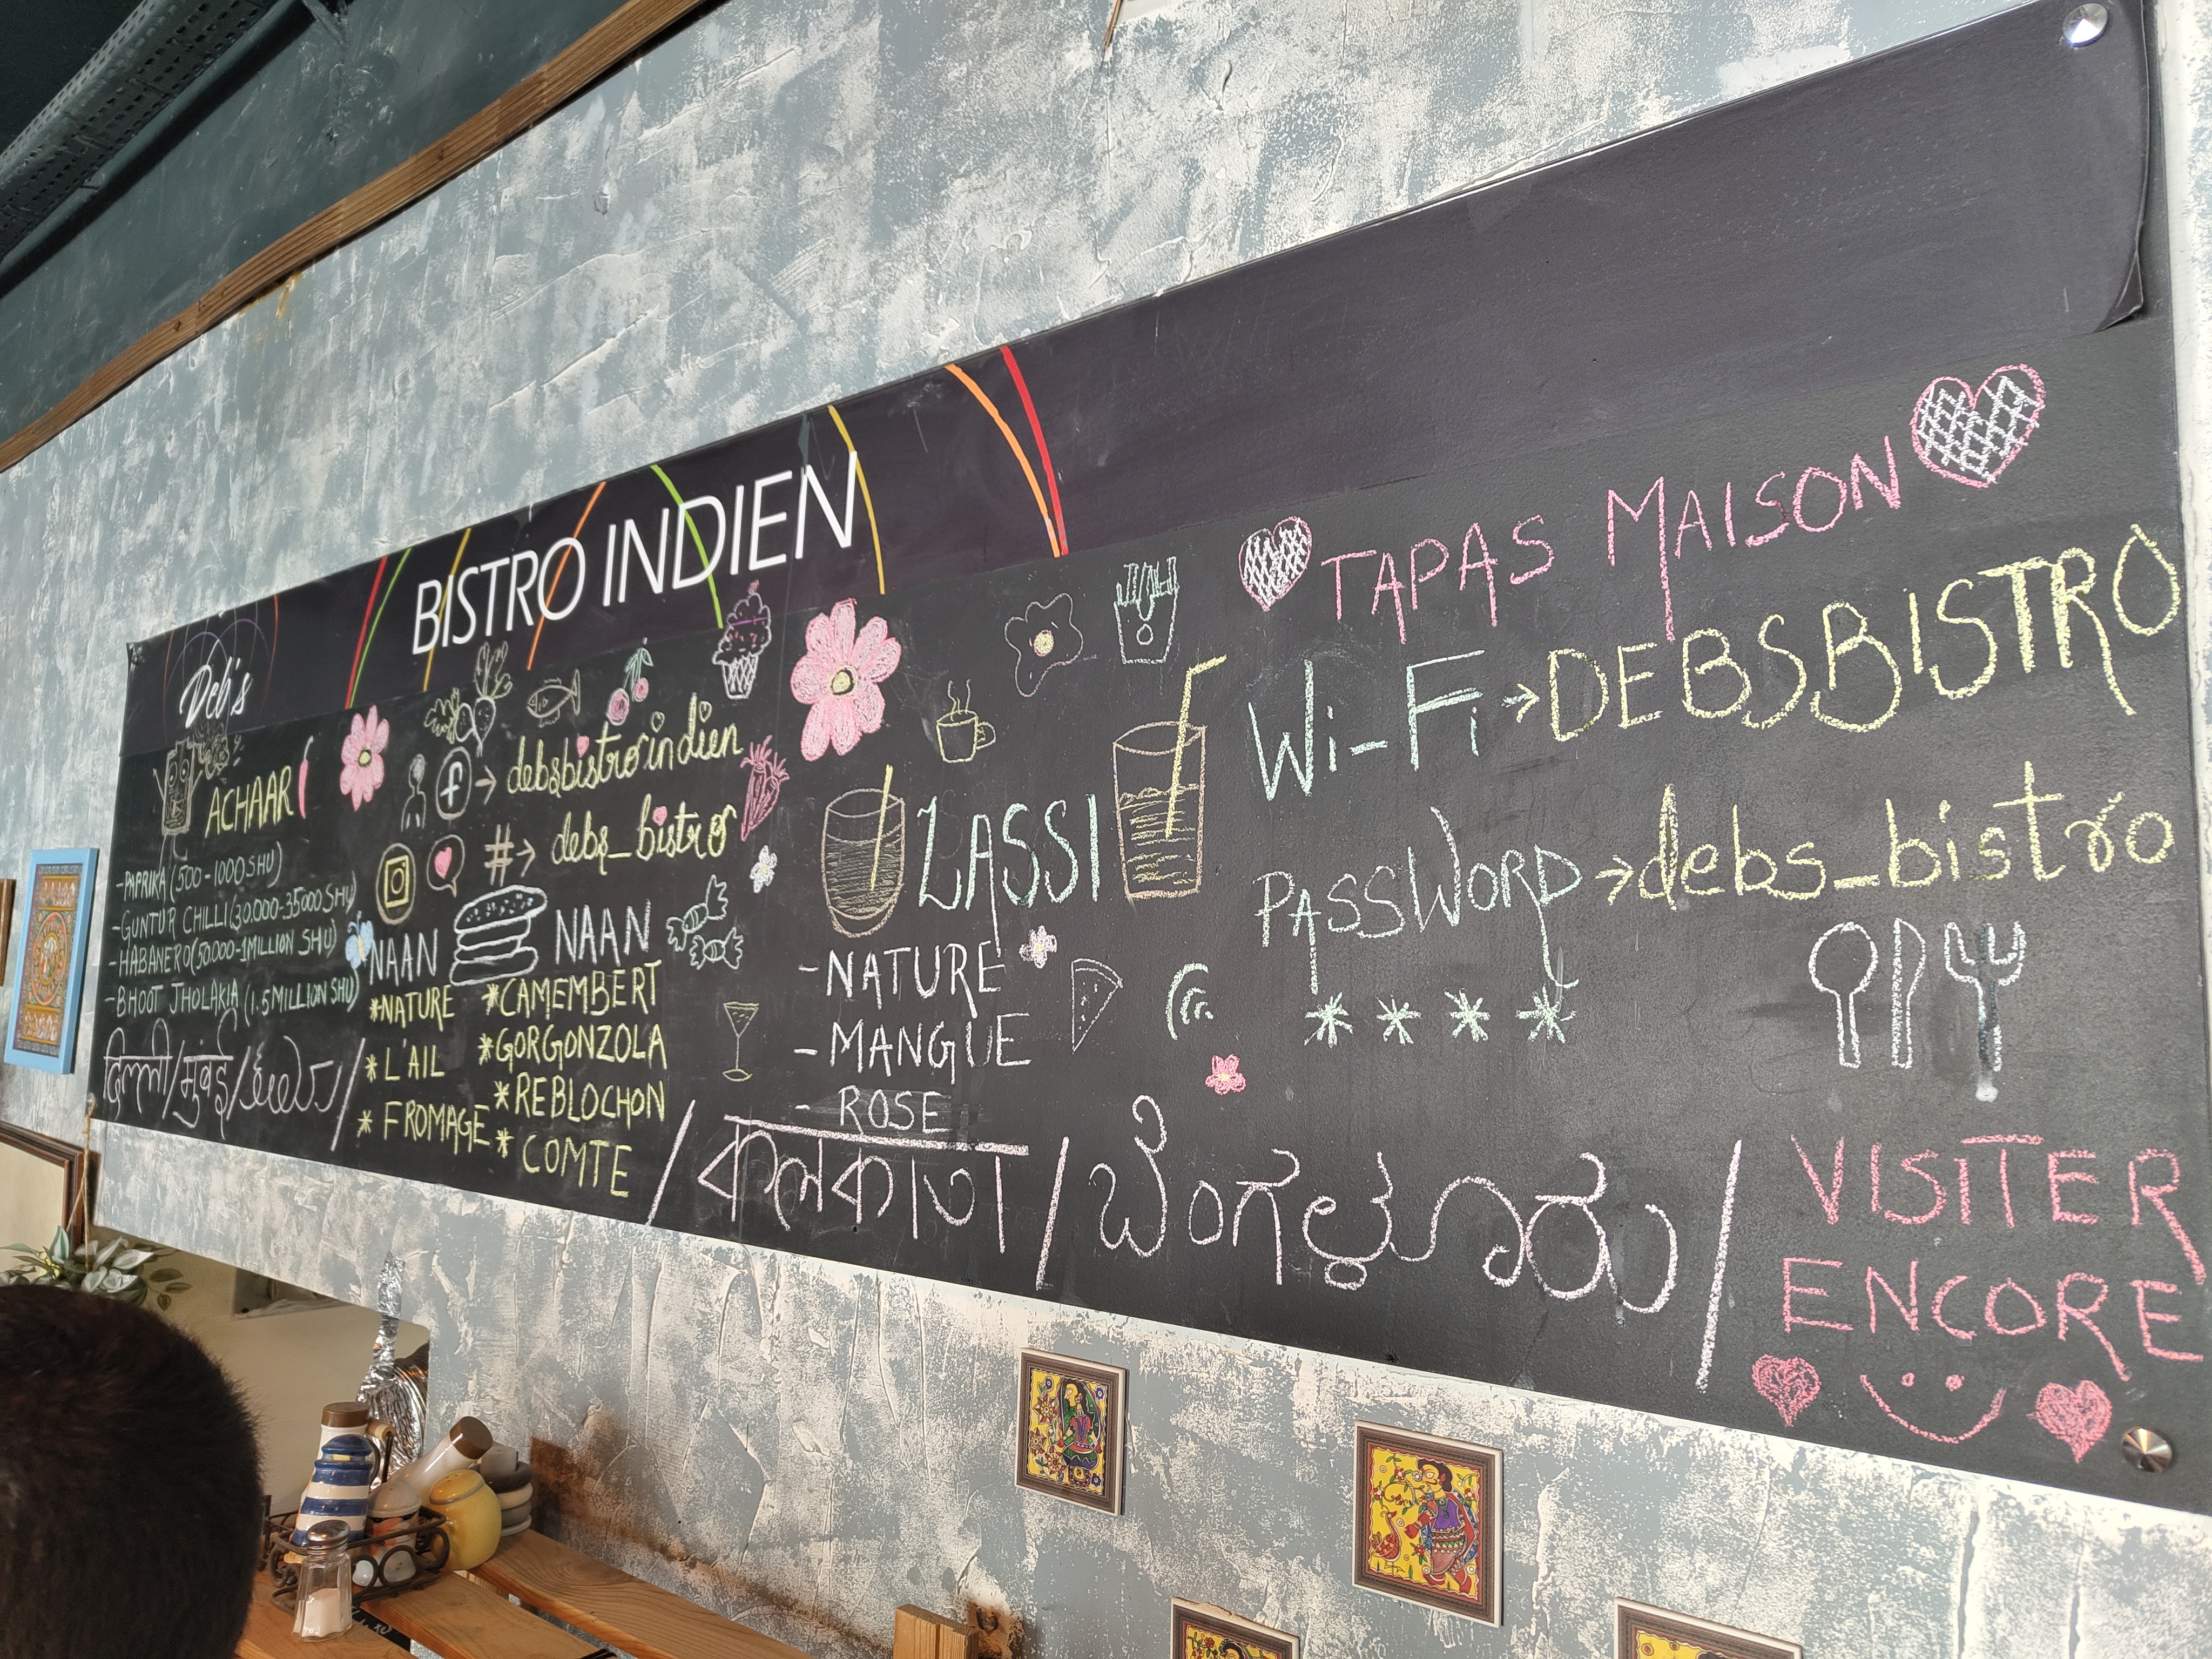 BISTRO INDIEN
Deb's
ACHAAR
-PAPRIKA (500-1000 SHU)
-GUNTUR CHILLI (30.000-35000 SHU)
-HABANERO (50000-1MILLION SHU)
-BHOOT JHOLAKIA (1.5 MILLION SHU)
f → debsbistroindien
# → debs_bistro
NAAN NAAN
*NATURE
*L'AIL
* FROMAGE
*CAMEMBERT
*GORGONZOLA
*REBLOCHON
* COMTE
LASSI
-NATURE
-MANGUE
- ROSE
TAPAS MAISON
Wi-Fi → DEBSBISTRO
PASSWORD → debs_bistro
* * * *
दिल्ली/मुंबई/ / কলকাতা / ಬೆಂಗಳೂರು /
VISITER
ENCORE